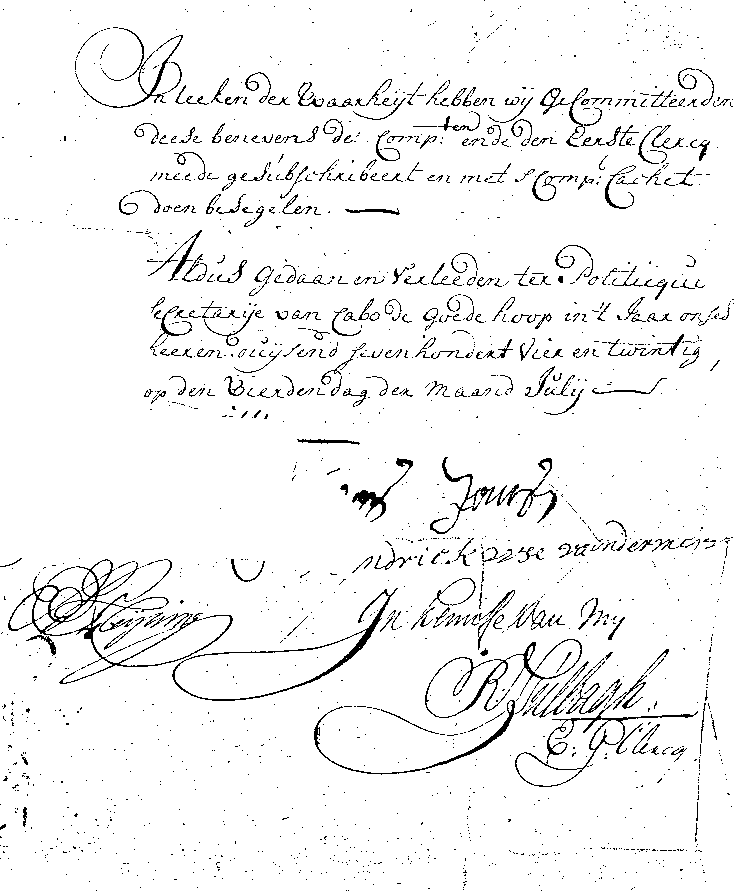 In teeken der Waarheyt hebben wij Gecommitteerden
deese benevens de: Comp:ten ende den Eerste Clercq
meede gesubschribeert en met s Comp: Cachet
doen besegelen.
Aldus Gedaan en Verleeden ter Politicque
Secretarije van Cabo de goede hoop in 't Jaar onses
heeren duysend sevenhondert Vier en twintig,
op den Vierden dag der maand Julij
ndrick
In kennisse van mij
R Tulbagh.
E: G: Clercq